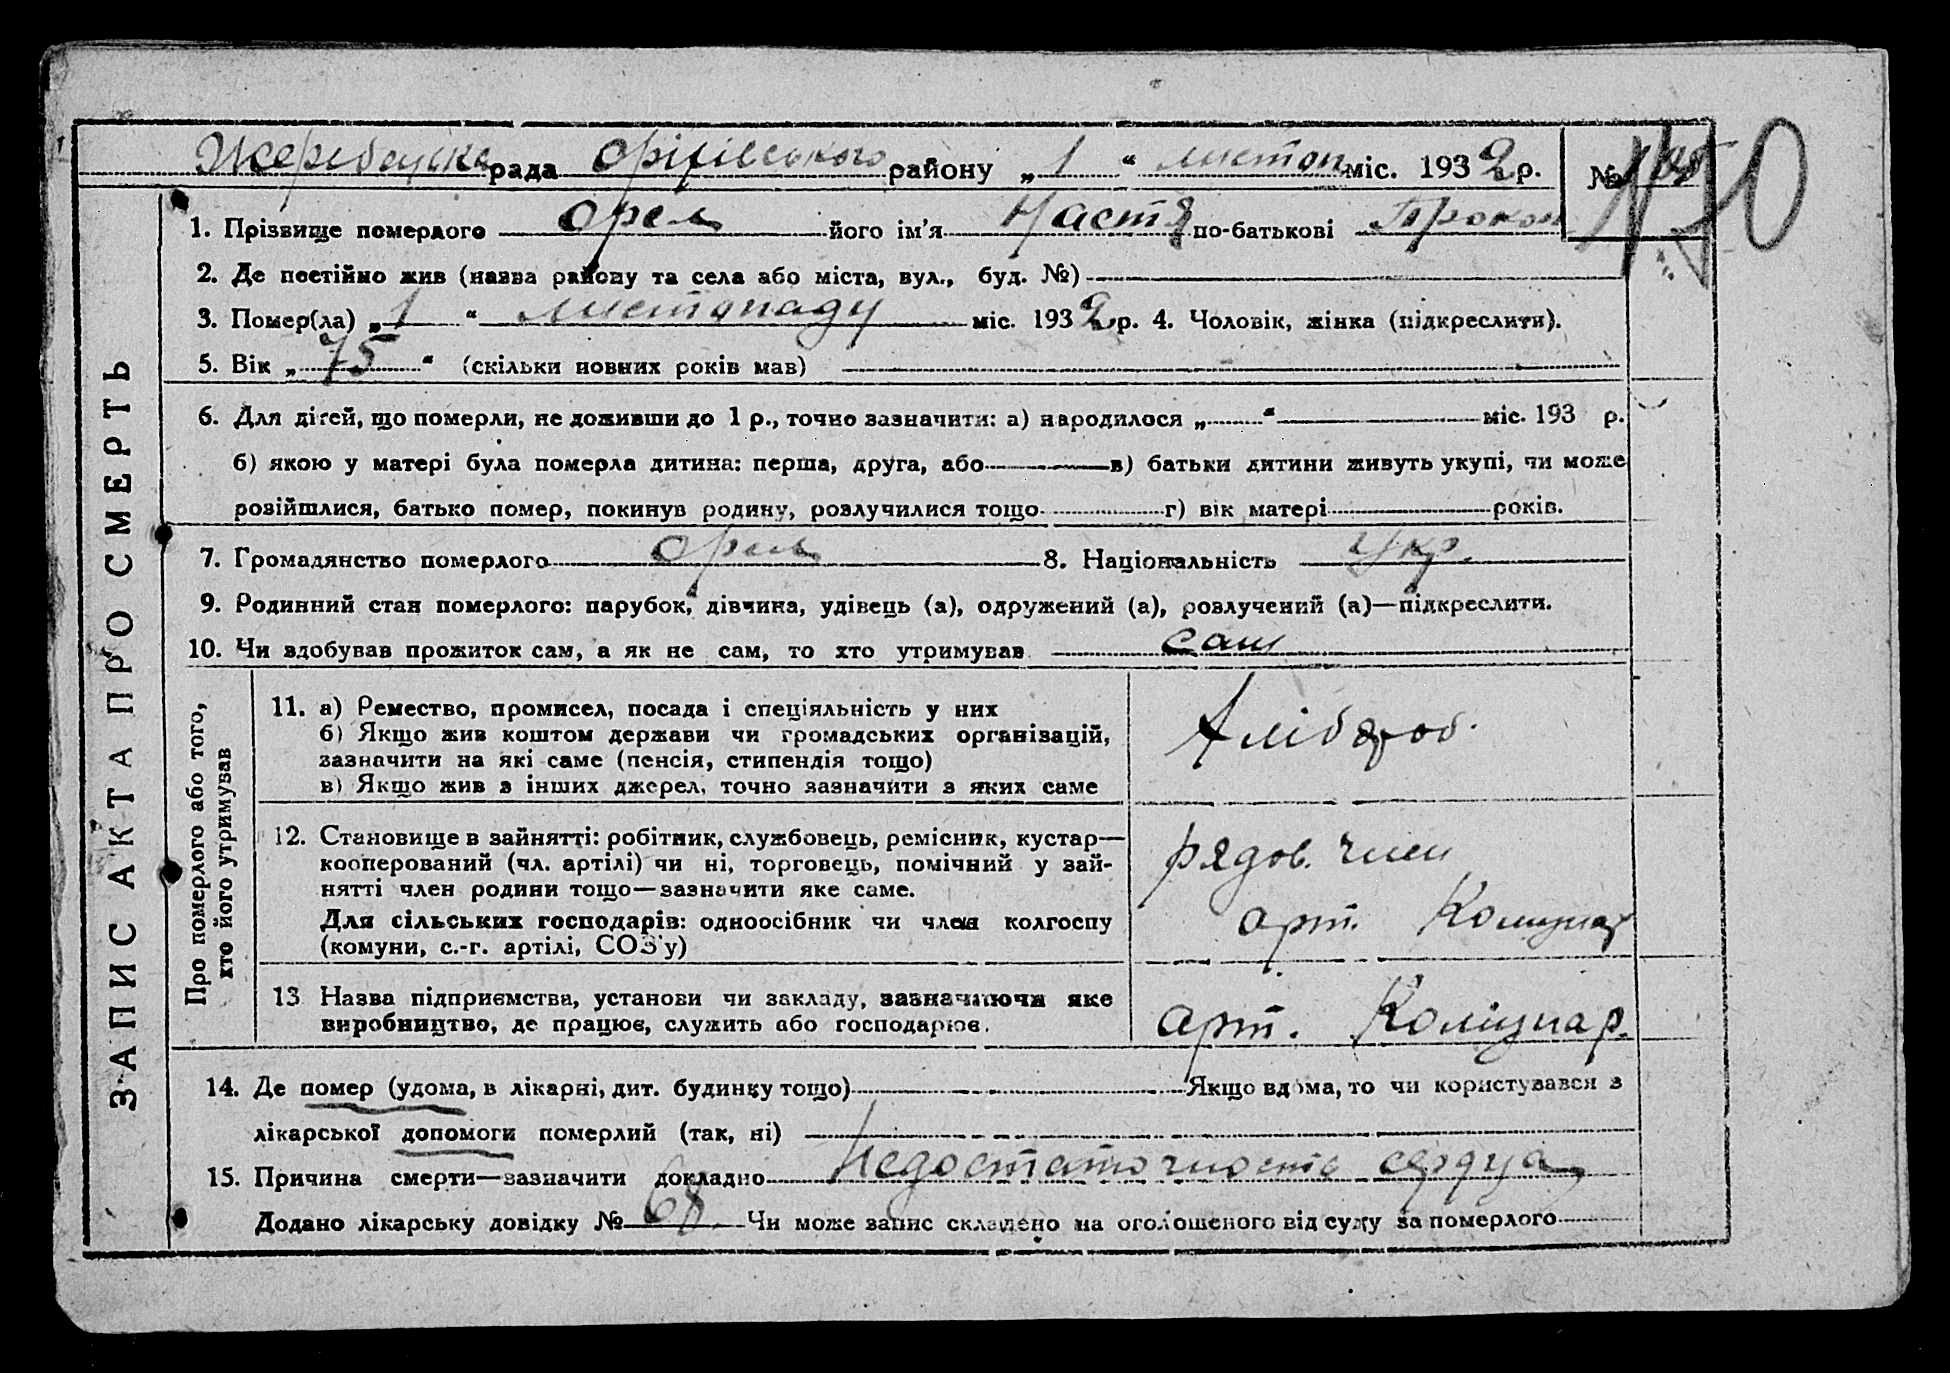 Жеребецька рада Оріхівського району „1“ листоп міс. 1932 р. №
170
1. Прізвище померлого Орел його ім'я Настя по-батькові Прокоп
2. Де постійно жив (назва району та села або міста, вул., буд. №)
3. Помер(ла) „1“ листопаду міс. 1932 р. 4. Чоловік, жінка (підкреслити).
5. Вік „75“ (скільки повних років мав)
6. Для дітей, що померли, не доживши до 1 р., точно зазначити: а) народилося „ “ міс. 193 р.
б) якою у матері була померла дитина: перша, друга, або в) батьки дитини живуть укупі, чи може
розійшлися, батько помер, покинув родину, розлучилися тощо г) вік матері років.
7. Громадянство померлого Орел 8. Національність Укр.
9. Родинний стан померлого: парубок, дівчина, удівець (а), одружений (а), розлучений (а)—підкреслити.
10. Чи здобував прожиток сам, а як не сам, то хто утримував сам
ЗАПИС АКТА ПРО СМЕРТЬ
Про померлого або того,
хто його утримував
11. а) Ремество, промисел, посада і спеціяльність у них
б) Якщо жив коштом держави чи громадських організацій,
зазначити на які саме (пенсія, стипендія тощо)
в) Якщо жив з інших джерел, точно зазначити з яких саме
Хлібороб.
12. Становище в зайнятті: робітник, службовець, ремісник, кустар—
кооперований (чл. артілі) чи ні, торговець, помічний у зай-
нятті член родини тощо—зазначити яке саме.
Для сільських господарів: одноосібник чи член колгоспу
(комуни, с.-г. артілі, СОЗ'у)
рядов. член
арт. Комунар
13 Назва підприємства, установи чи закладу, зазначаючи яке
виробництво, де працює, служить або господарює.
арт. Комунар.
14. Де помер (удома, в лікарні, дит. будинку тощо) Якщо вдома, то чи користувався з
лікарської допомоги померлий (так, ні)
15. Причина смерти—зазначити докладно Недостаточность сердца
Додано лікарську довідку № 68. Чи може запис складено на оголошеного від суду за померлого